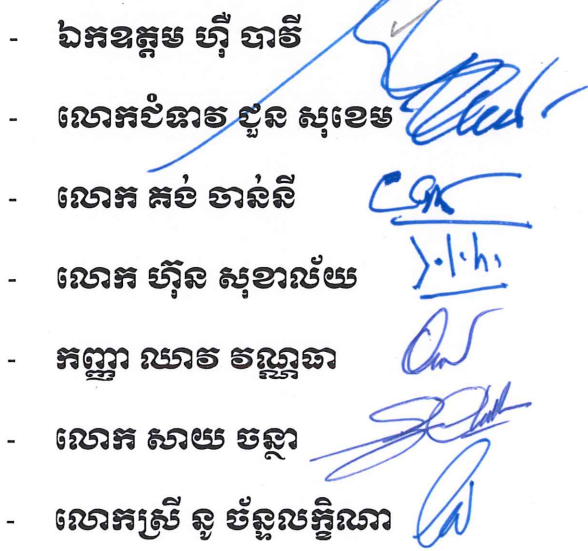 - ឯកឧត្តម ហ៊ី បាវី
- លោកជំទាវ ជួន សុខេម
- លោក គង់ ចាន់នី
- លោក ហ៊ុន សុខាល័យ
- កញ្ញា ឈាវ វណ្ណធា
- លោក សាយ ចន្ថា
- លោកស្រី នូ ច័ន្ទលក្ខិណា